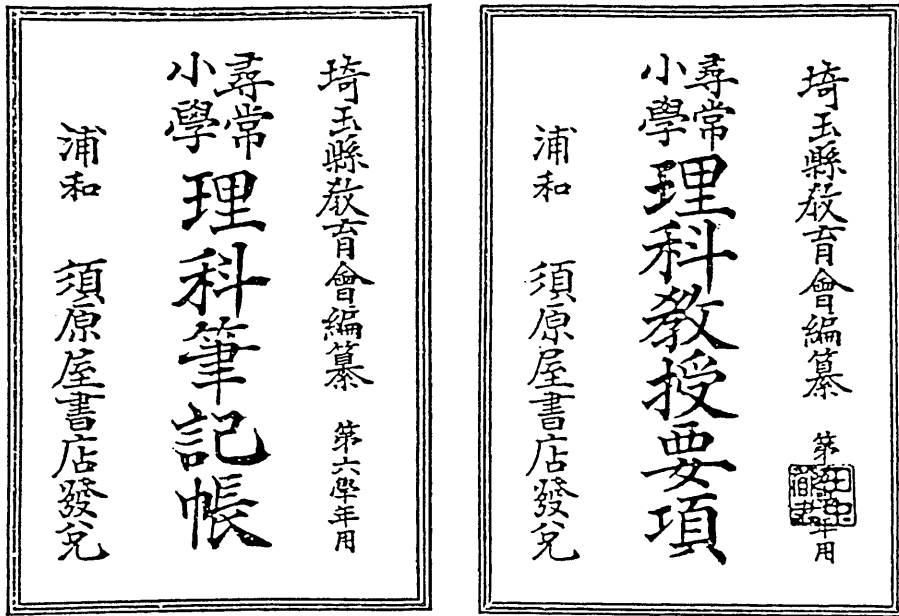 埼玉縣教育會編纂 第 年用
尋常小學 理科教授要項
浦和 須原屋書店發兌
埼玉縣教育會編纂 第六學年用
尋常小學 理科筆記帳
浦和 須原屋書店發兌